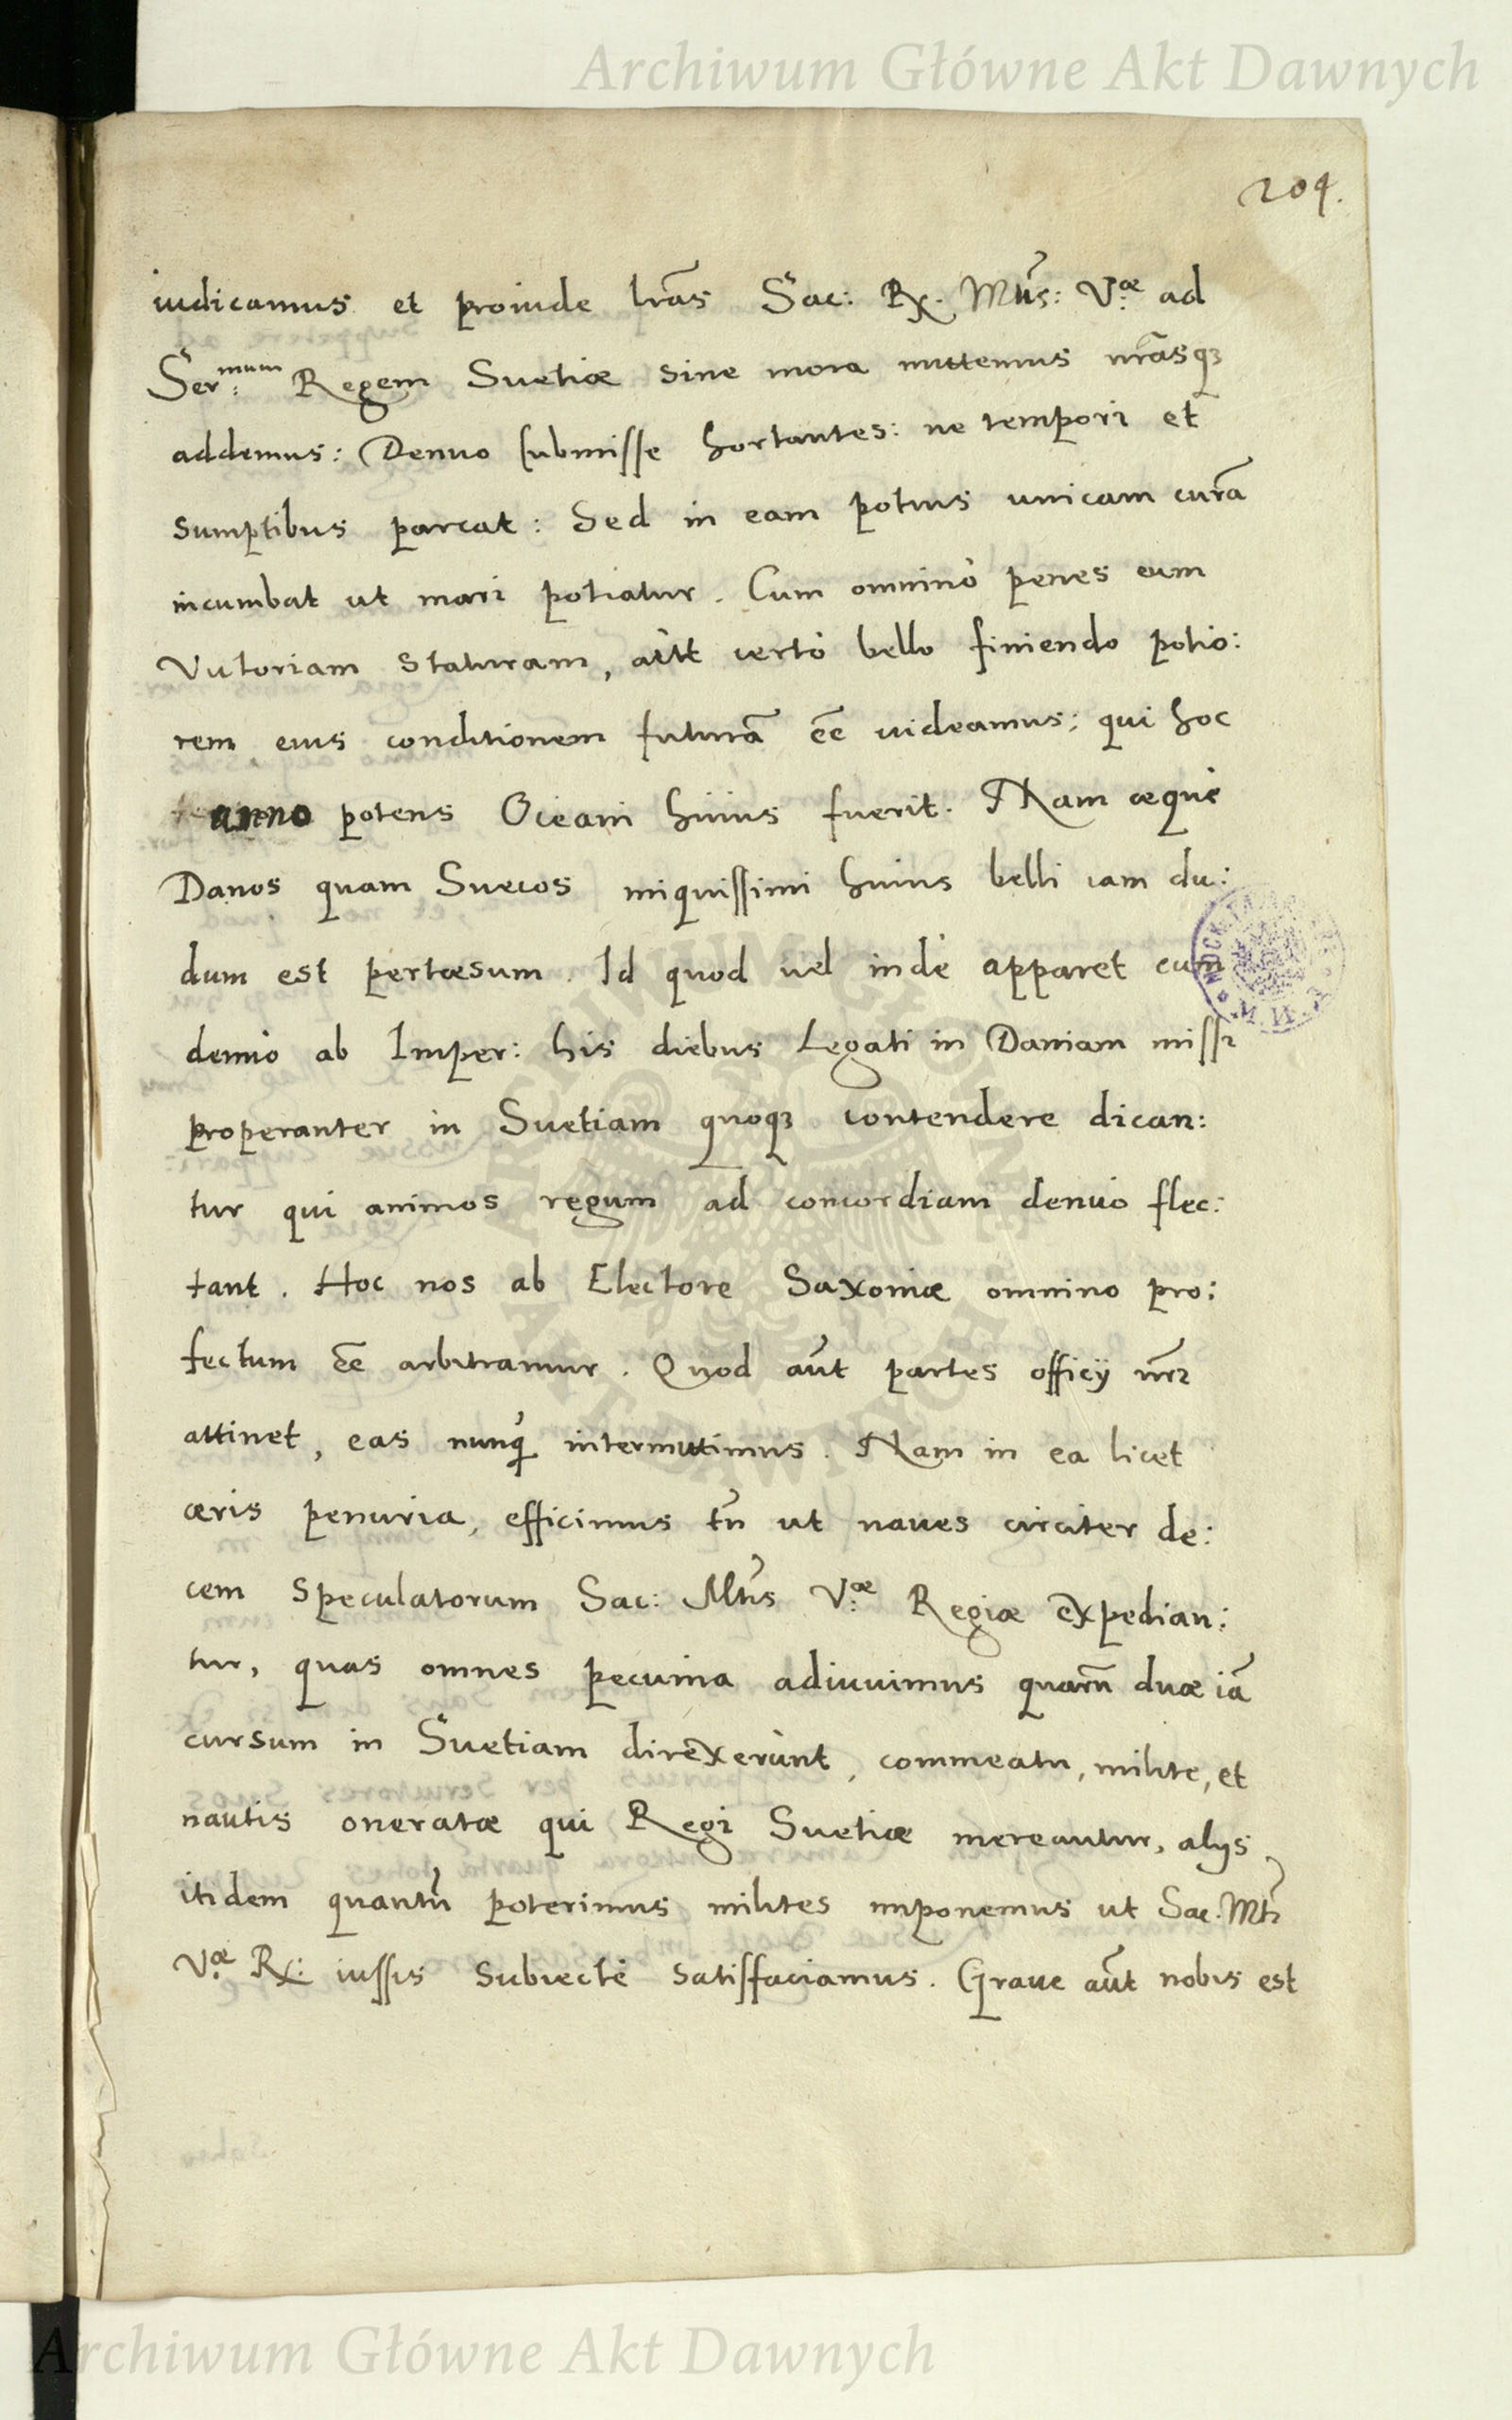 Archiwum Główne Akt Dawnych
204.
iudicamus et proinde lrās Sac: Rx. Mtis: V.æ ad
Ser:mum Regem Suetiæ sine mora mittemus nrāsqꝫ
addemus: Denuo submisse hortantes: ne tempori et
sumptibus parcat: Sed in eam potius unicam curā
incumbat ut mari potiatur. Cum omninò penes eum
Victoriam staturam, aut certò bello finiendo potio:
rem eius conditionem futurā eē uideamus: qui hoc
anno potens Oceani huius fuerit. Nam æquè
Danos quam Suecos iniquissimi huius belli iam du:
dum est pertæsum. Id quod uel indè apparet cum
denuò ab Imper: his diebus Legati in Daniam missi
properanter in Suetiam quoqꝫ contendere dican:
tur qui animos regum ad concordiam denuò flec:
tant. Hoc nos ab Electore Saxoniæ omnino pro:
fectum eē arbitramur. Quod aūt partes officij nrī
attinet, eas nunq̄ intermittimus. Nam in ea licet
æris penuria, efficimus tn̄ ut naues circiter de:
cem Speculatorum Sac: Mtis V.æ Regiæ expedian:
tur, quas omnes pecunia adiuuimus quarū duæ iā
cursum in Suetiam direxerunt, commeatu, milite, et
nautis oneratæ qui Regi Suetiæ mereantur, alijs
itidem quantū poterimus milites imponemus ut Sac. Mtis
V.æ Rx: iussis subiectè satisfaciamus. Graue aūt nobis est
Archiwum Główne Akt Dawnych